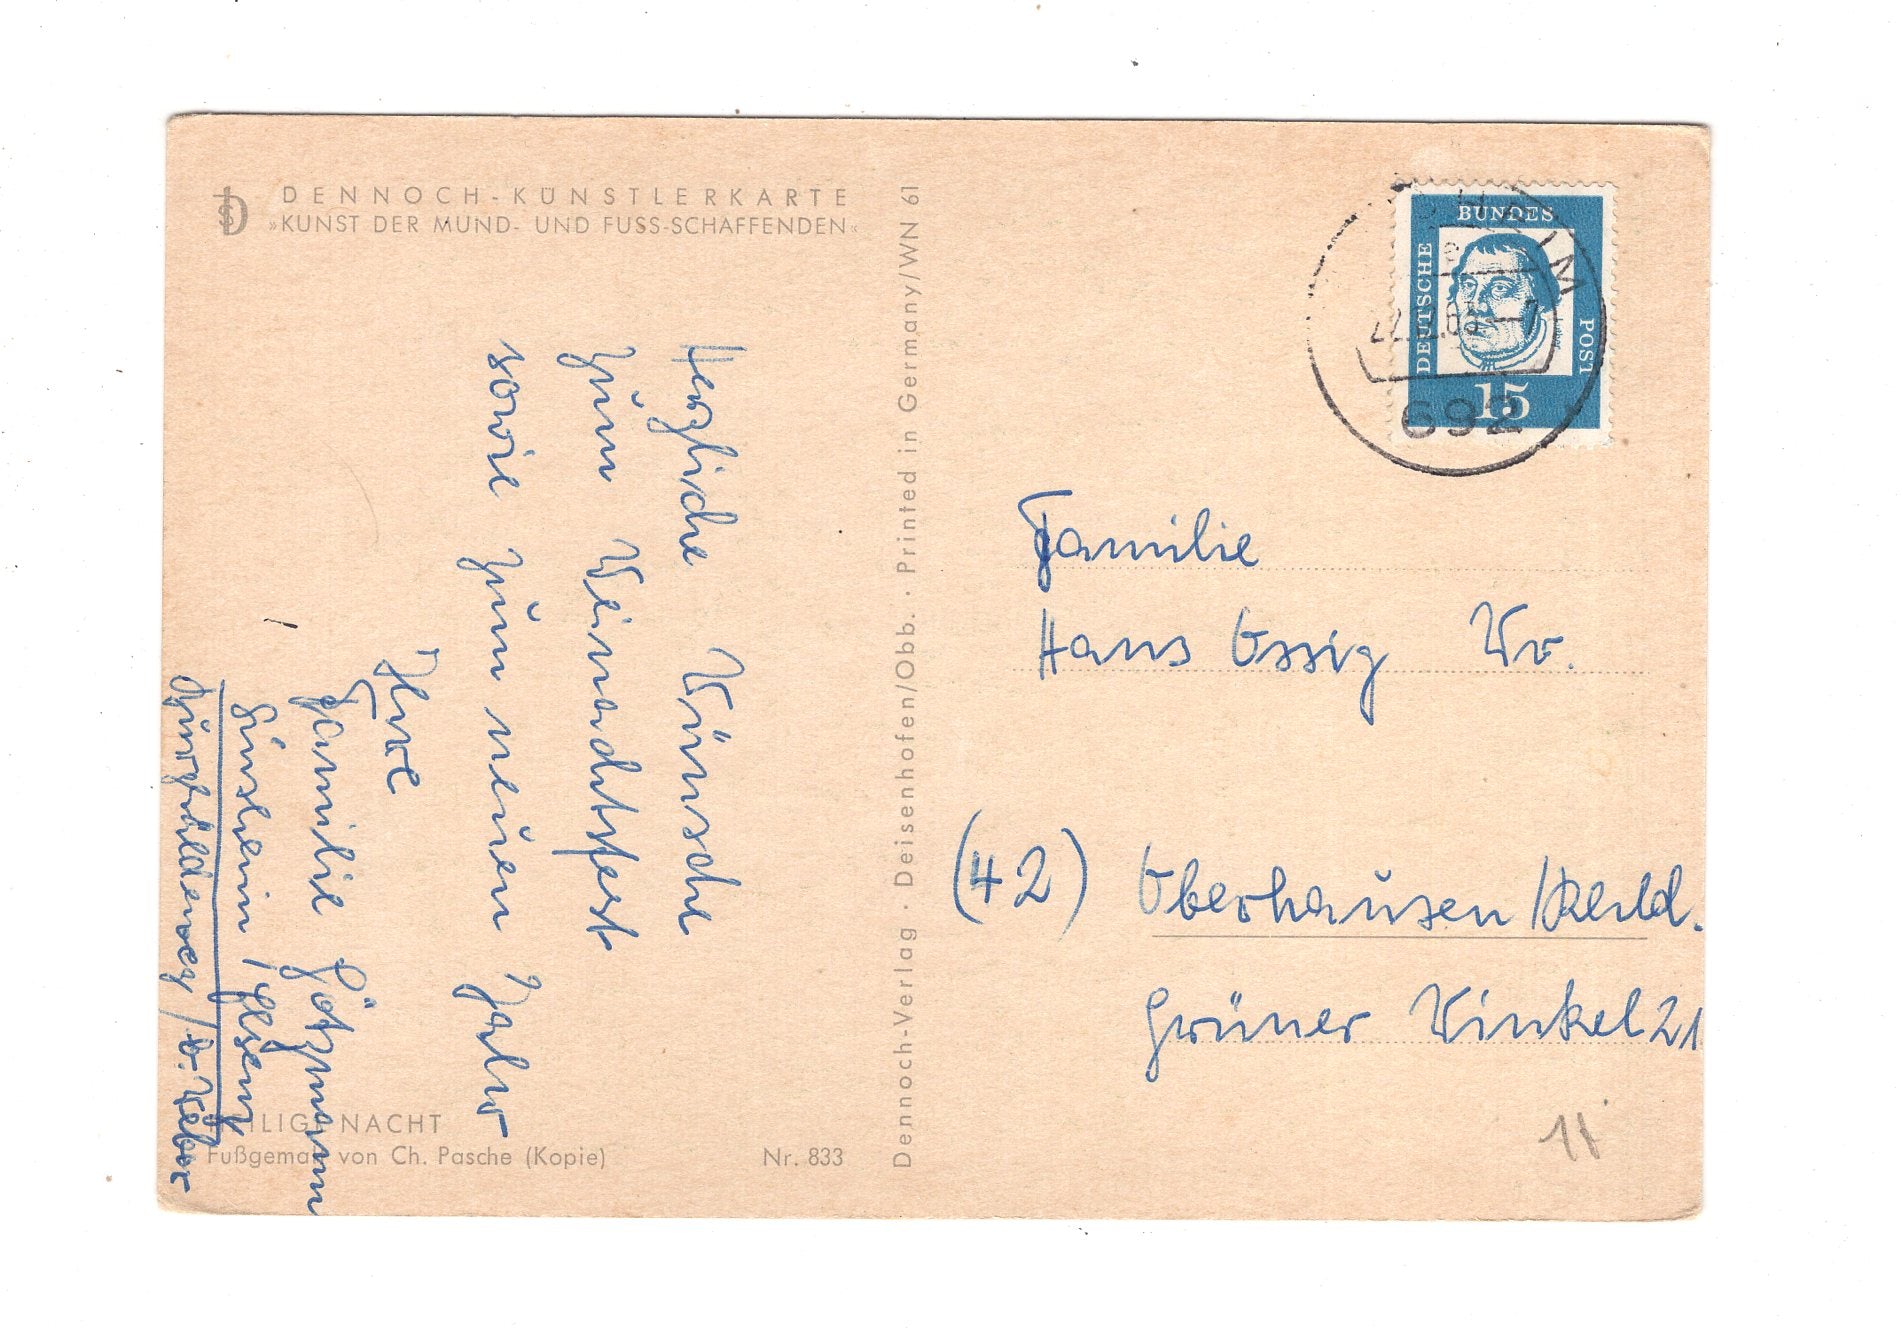 DENNOCH-KÜNSTLERKARTE
»KUNST DER MUND- UND FUSS-SCHAFFENDEN«
Herzliche Wünsche
zum Weinachtsfest
sowie zum neuen Jahr
Ihre
Familie
Sinsheim / Elsenz
/ b. Weber
NACHT
von Ch. Pasche (Kopie)
Nr. 833
Dennoch-Verlag · Deisenhofen/Obb. · Printed in Germany/WN 61
DEUTSCHE BUNDES POST
15
SHEIM
e
692
Familie
Hans Ossig
(42) Oberhausen / Rhld.
Grüner Winkel 21
11